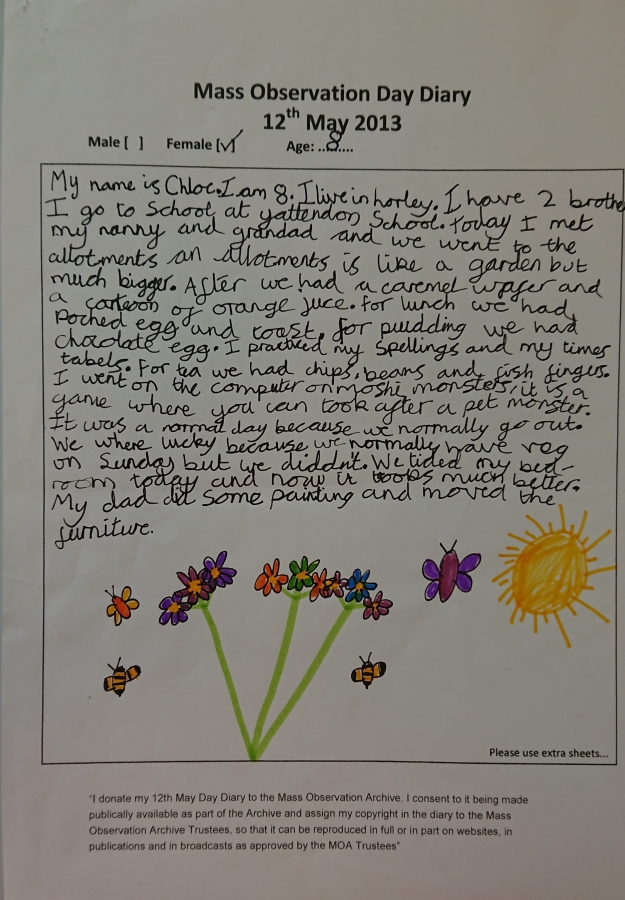 Mass Observation Day Diary
12th May 2013
Male [ ] Female [✓] Age: ..8....
My name is Chloe. I am 8. I live in horley. I have 2 brothe
I go to School at yattendon School. today I met
my nanny and grandad and we went to the
allotments an allotments is like a garden but
much bigger. After we had a caremel wafer and
a carteon of orange juce. for lunch we had
Poched egg and toast, for pudding we had
chocolate egg. I practiced my spellings and my times
tabels. For tea we had chips, beans and fish fingers.
I went on the computer on moshi monsters, it is a
game where you can look after a pet monster.
It was a normal day because we normally go out.
We where lucky because we normally have veg
on Sunday but we diddn't. We tided my bed-
room today and now it looks much better.
My dad did some painting and moved the
furniture.
Please use extra sheets...
"I donate my 12th May Day Diary to the Mass Observation Archive. I consent to it being made
publically available as part of the Archive and assign my copyright in the diary to the Mass
Observation Archive Trustees, so that it can be reproduced in full or in part on websites, in
publications and in broadcasts as approved by the MOA Trustees"